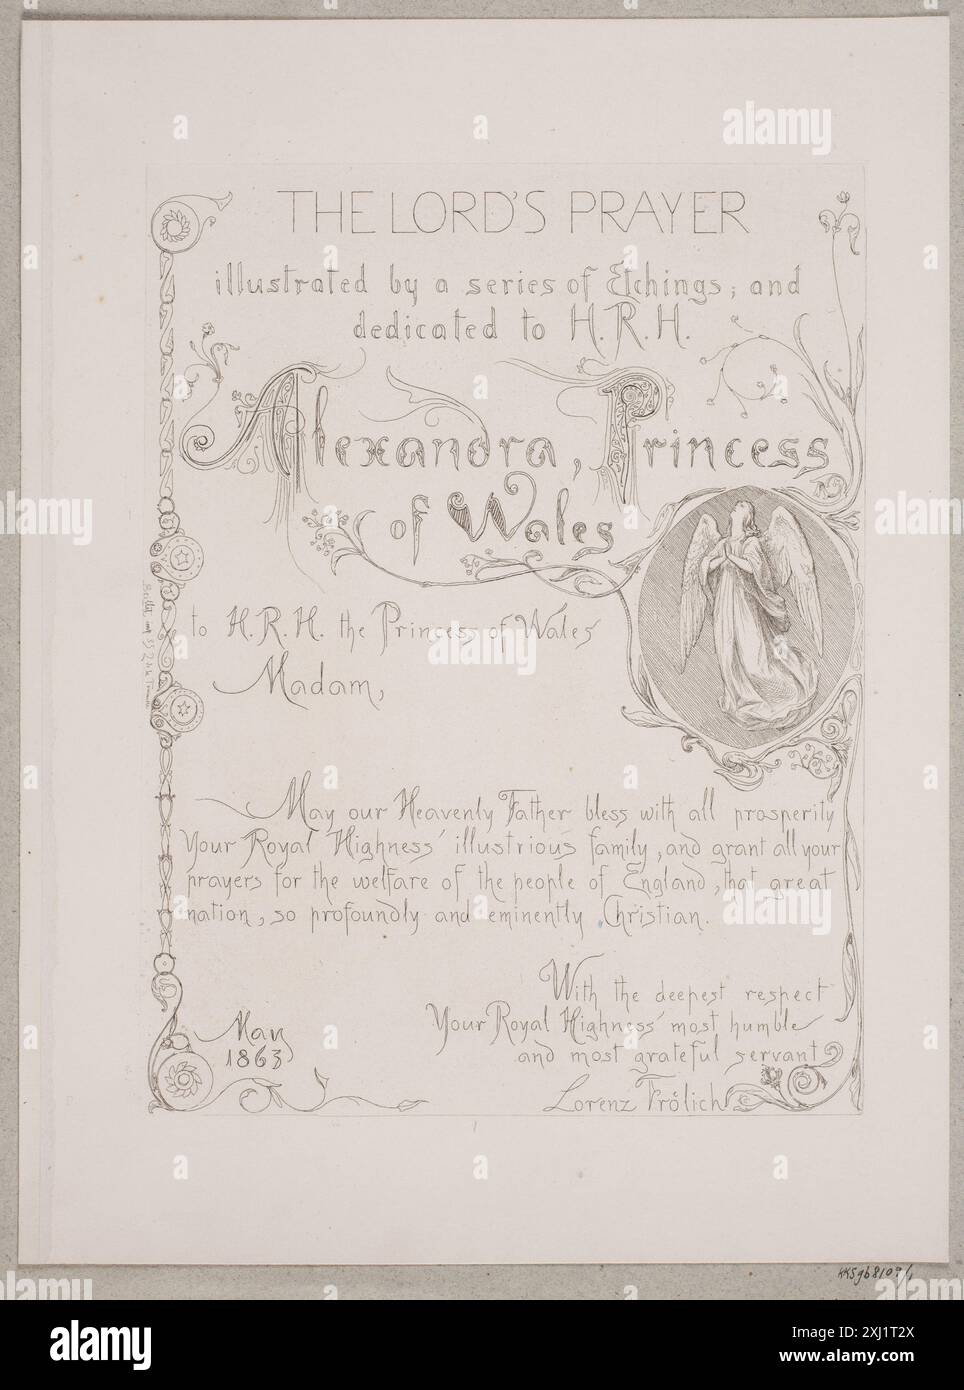 THE LORD'S PRAYER
illustrated by a series of Etchings; and
dedicated to H.R.H.
Alexandra, Princess
of Wales
to H.R.H. the Princess of Wales
Madam,
May our Heavenly Father bless with all prosperity
Your Royal Highness' illustrious family, and grant all your
prayers for the welfare of the people of England, that great
nation, so profoundly and eminently Christian.
With the deepest respect
Your Royal Highness' most humble
and most grateful servant
Lorenz Frölich
May
1863
alamy
alamy
Image ID: 2XJ1T2X
www.alamy.com